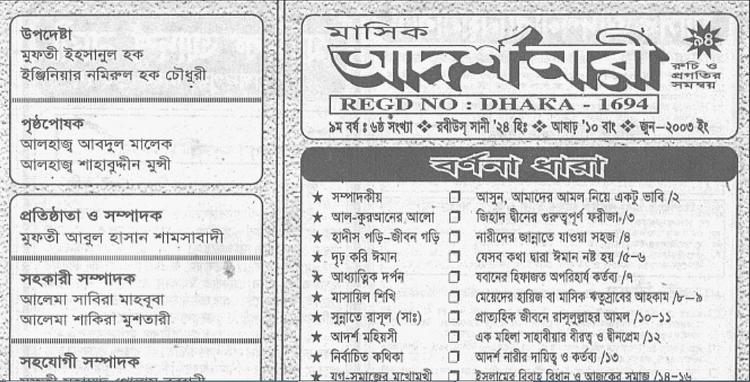 উপদেষ্টা
মুফতী ইহসানুল হক
ইঞ্জিনিয়ার নমিরুল হক চৌধুরী
পৃষ্ঠপোষক
আলহাজ্ব আবদুল মালেক
আলহাজ্ব শাহাবুদ্দীন মুন্সী
প্রতিষ্ঠাতা ও সম্পাদক
মুফতী আবুল হাসান শামসাবাদী
সহকারী সম্পাদক
আলেমা সাবিরা মাহবূবা
আলেমা শাকিরা মুশতারী
সহযোগী সম্পাদক
মাসিক
আদর্শ নারী
৯৪
রুচি ও
প্রগতির
সমন্বয়
REGD NO : DHAKA - 1694
৯ম বর্ষ ঃ ৬ষ্ঠ সংখ্যা ❖ রবীউস্ সানী '২৪ হিঃ ❖ আষাঢ় '১০ বাং ❖ জুন–২০০৩ ইং
বর্ণনা ধারা
★ সম্পাদকীয় ❐ আসুন, আমাদের আমল নিয়ে একটু ভাবি /২
★ আল-কুরআনের আলো ❐ জিহাদ দ্বীনের গুরুত্বপূর্ণ ফরীজা /৩
★ হাদীস পড়ি–জীবন গড়ি ❐ নারীদের জান্নাতে যাওয়া সহজ /৪
★ দৃঢ় করি ঈমান ❐ যেসব কথা দ্বারা ঈমান নষ্ট হয় /৫–৬
★ আধ্যাত্মিক দর্পন ❐ যবানের হিফাজত অপরিহার্য কর্তব্য /৭
★ মাসায়িল শিখি ❐ মেয়েদের হায়িজ বা মাসিক ঋতুস্রাবের আহকাম /৮–৯
★ সুন্নাতে রাসূল (সাঃ) ❐ প্রাত্যহিক জীবনে রাসূলুল্লাহর আমল /১০–১১
★ আদর্শ মহিয়সী ❐ এক মহিলা সাহাবীয়ার বীরত্ব ও দ্বীনপ্রেম /১২
★ নির্বাচিত কথিকা ❐ আদর্শ নারীর দায়িত্ব ও কর্তব্য /১৩
★ যুগ-সমাজের মুখোমুখী ❐ ইসলামের বিবাহ বিধান ও আজকের সমাজ /১৪–১৬